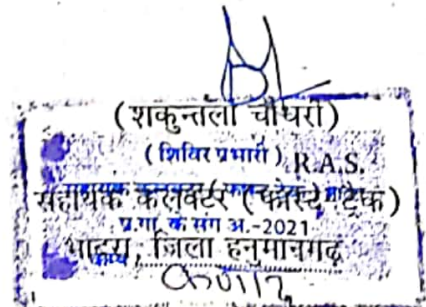 (शकुन्तला चौधरी)
(शिविर प्रभारी) R.A.S.
सहायक कलक्टर (फास्ट ट्रेक)
प्र.गा. के संग अ.-2021
भादरा, जिला हनुमानगढ़